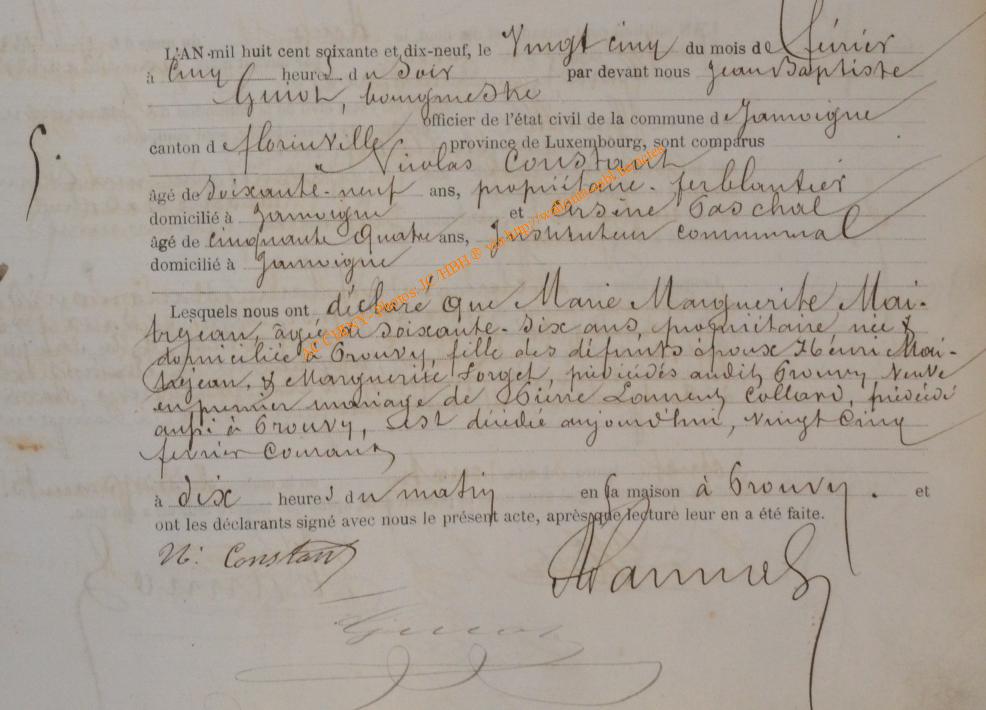 L'AN mil huit cent soixante et dix-neuf, le Vingt cinq du mois de février
à Cinq heures du Soir par devant nous Jean Baptiste
Guiot, bourgmestre
officier de l'état civil de la commune d Jamoigne
canton d florinville province de Luxembourg, sont comparus
5. Nicolas Constant
âgé de Soixante-neuf ans, propriétaire-ferblantier
domicilié à Jamoigne et Arsène Paschal
âgé de cinquante quatre ans, Instituteur communal
domicilié à Jamoigne
Lesquels nous ont déclaré que Marie Marguerite Mai-
trejean, âgée de Soixante-Six ans, propriétaire née &
domiciliée à Prouvy, fille des défunts époux Henri Mai-
trejean, & Marguerite Forget, précédés audit Prouvy Veuve
en premier mariage de Pierre Laurent Collard, précédé
aussi à Prouvy, est décédée aujourd'hui, vingt Cinq
février Courant
à dix heures du matin en sa maison à Prouvy. et
ont les déclarants signé avec nous le présent acte, après que lecture leur en a été faite.
N: Constant
Guiot
ACCUEXY-Photos JC HBH ® via http://wallonia